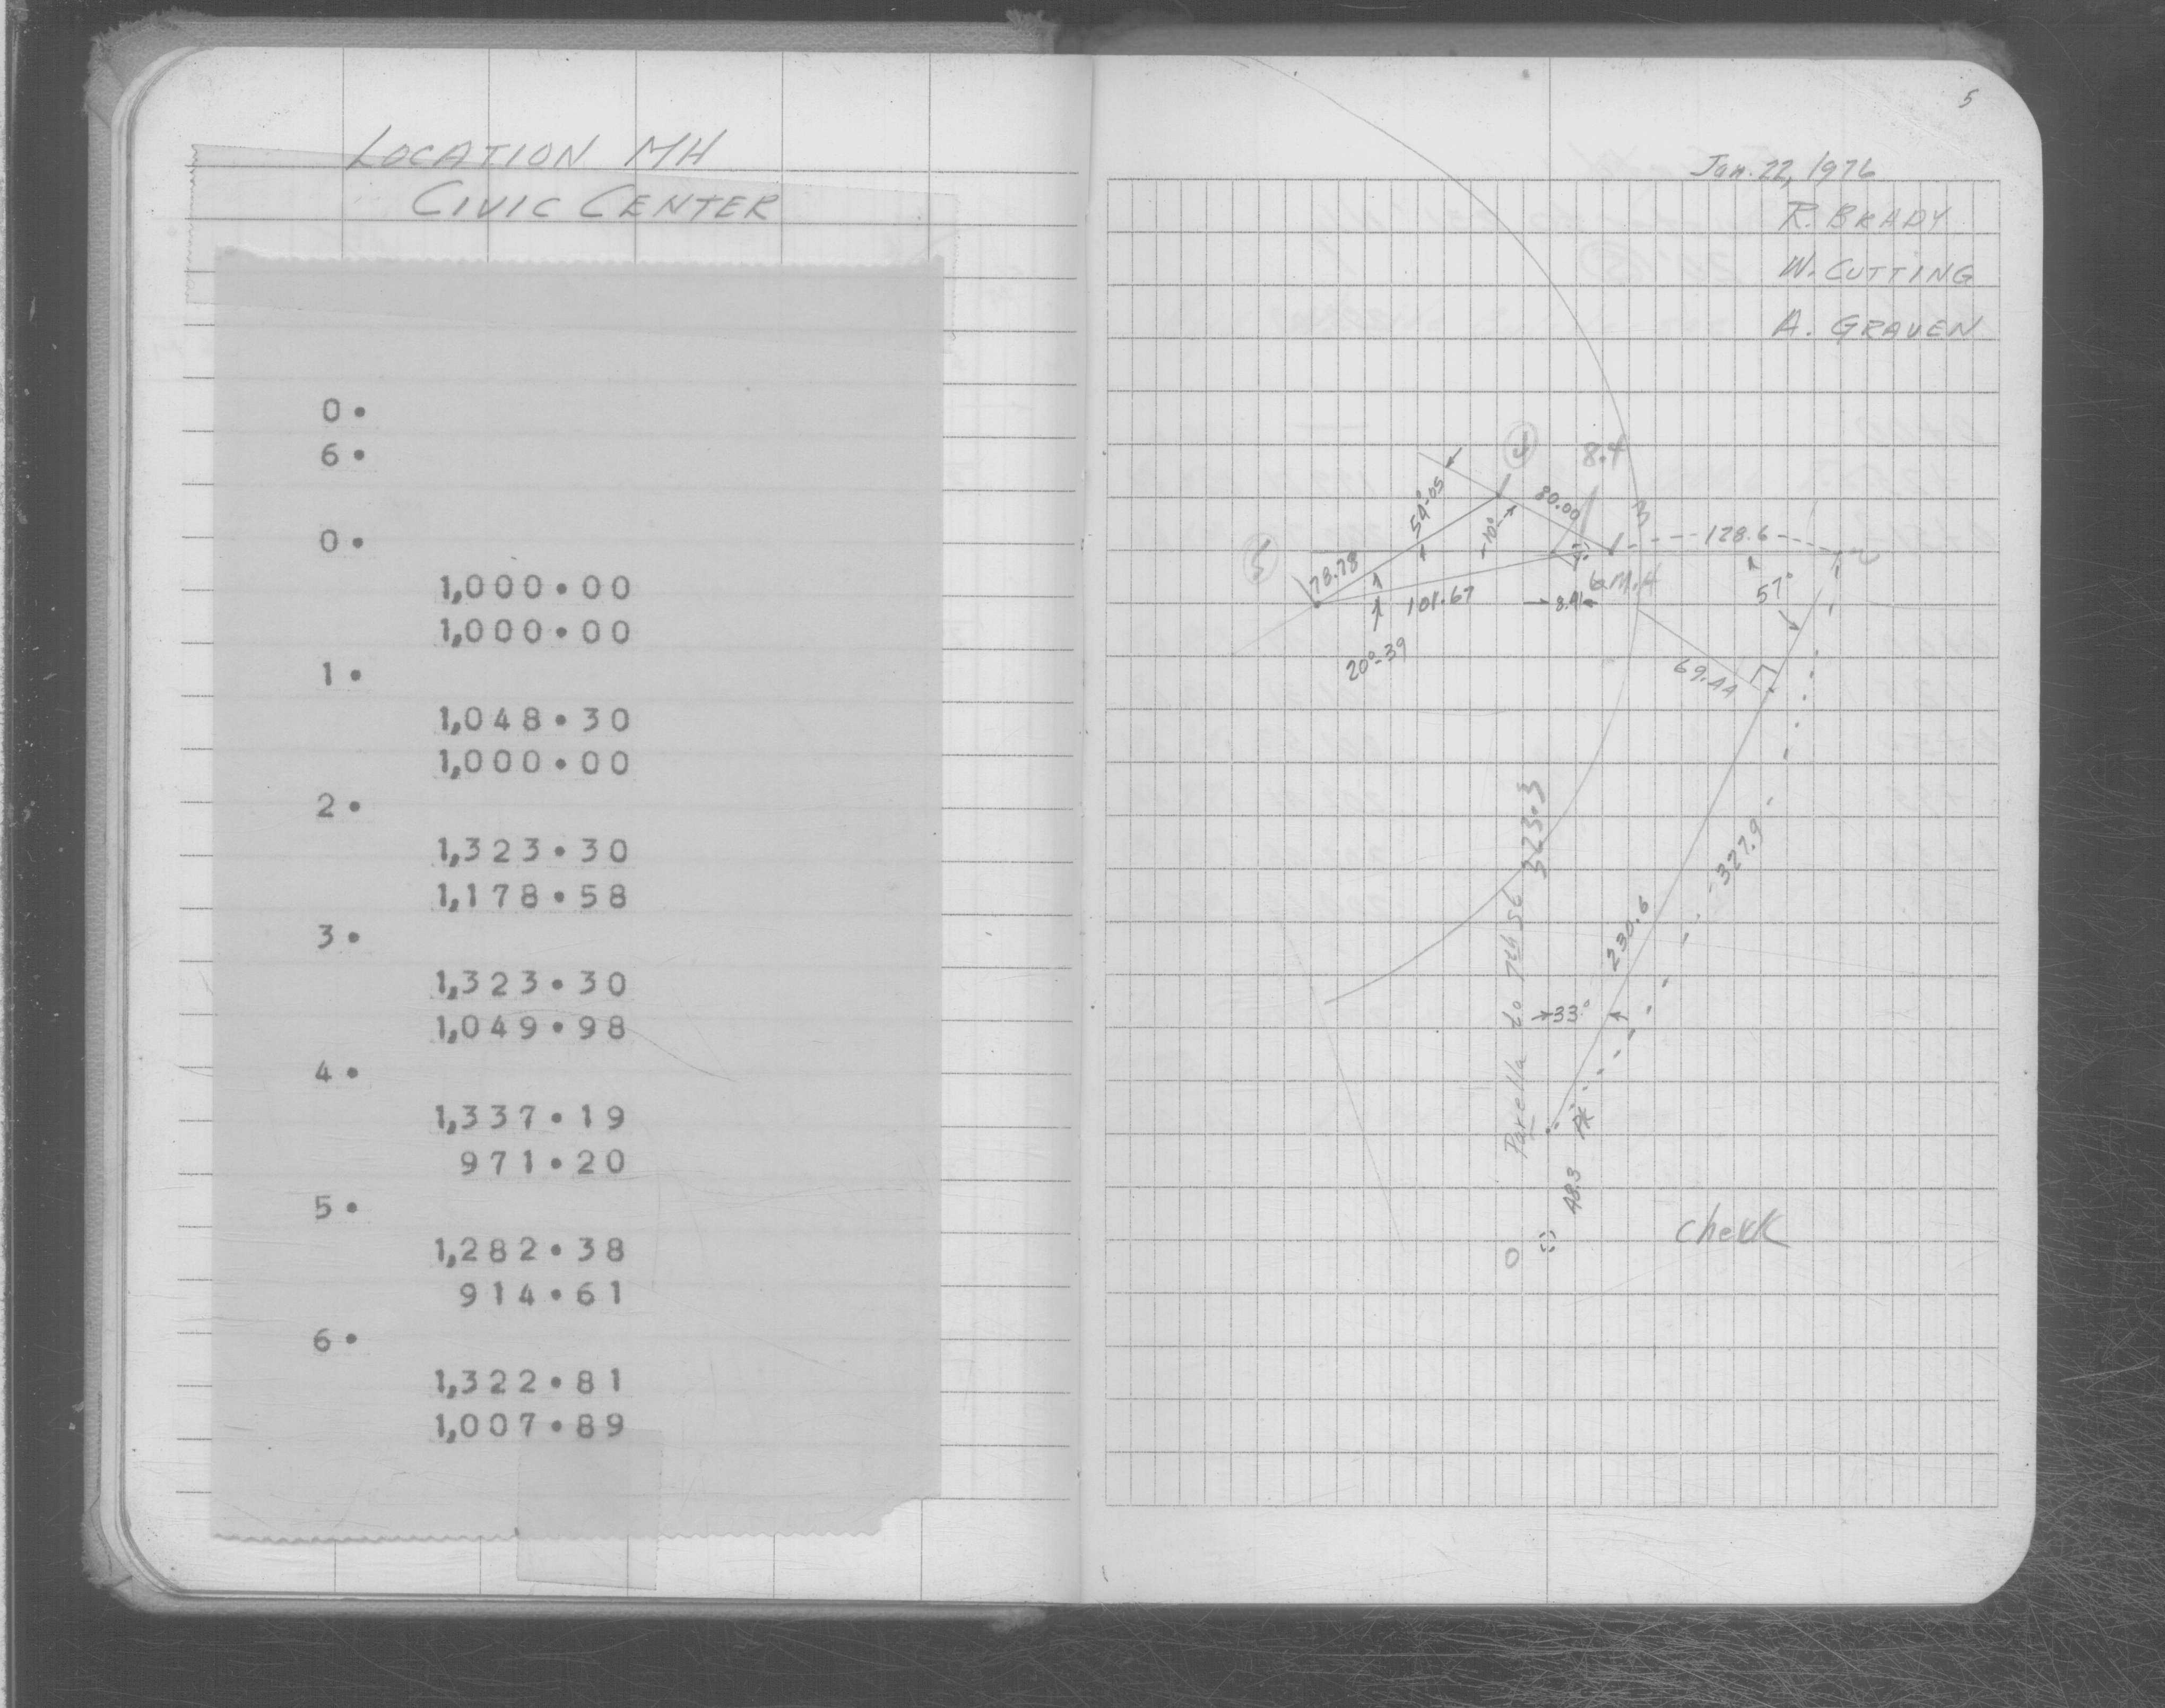 LOCATION MH
CIVIC CENTER
0.
6.
0.
1,000.00
1,000.00
1.
1,048.30
1,000.00
2.
1,323.30
1,178.58
3.
1,323.30
1,049.98
4.
1,337.19
971.20
5.
1,282.38
914.61
6.
1,322.81
1,007.89
5
Jan. 22, 1976
R. BRADY
W. CUTTING
A. GRAVEN
4
8.4
54°-05
80.00
3
10°
128.6
2
5
78.78
101.67
8.41
6 M.H
57°
20°-39
69.44
323.3
327.9
230.6
to 7th St
33°
48.3
0
check